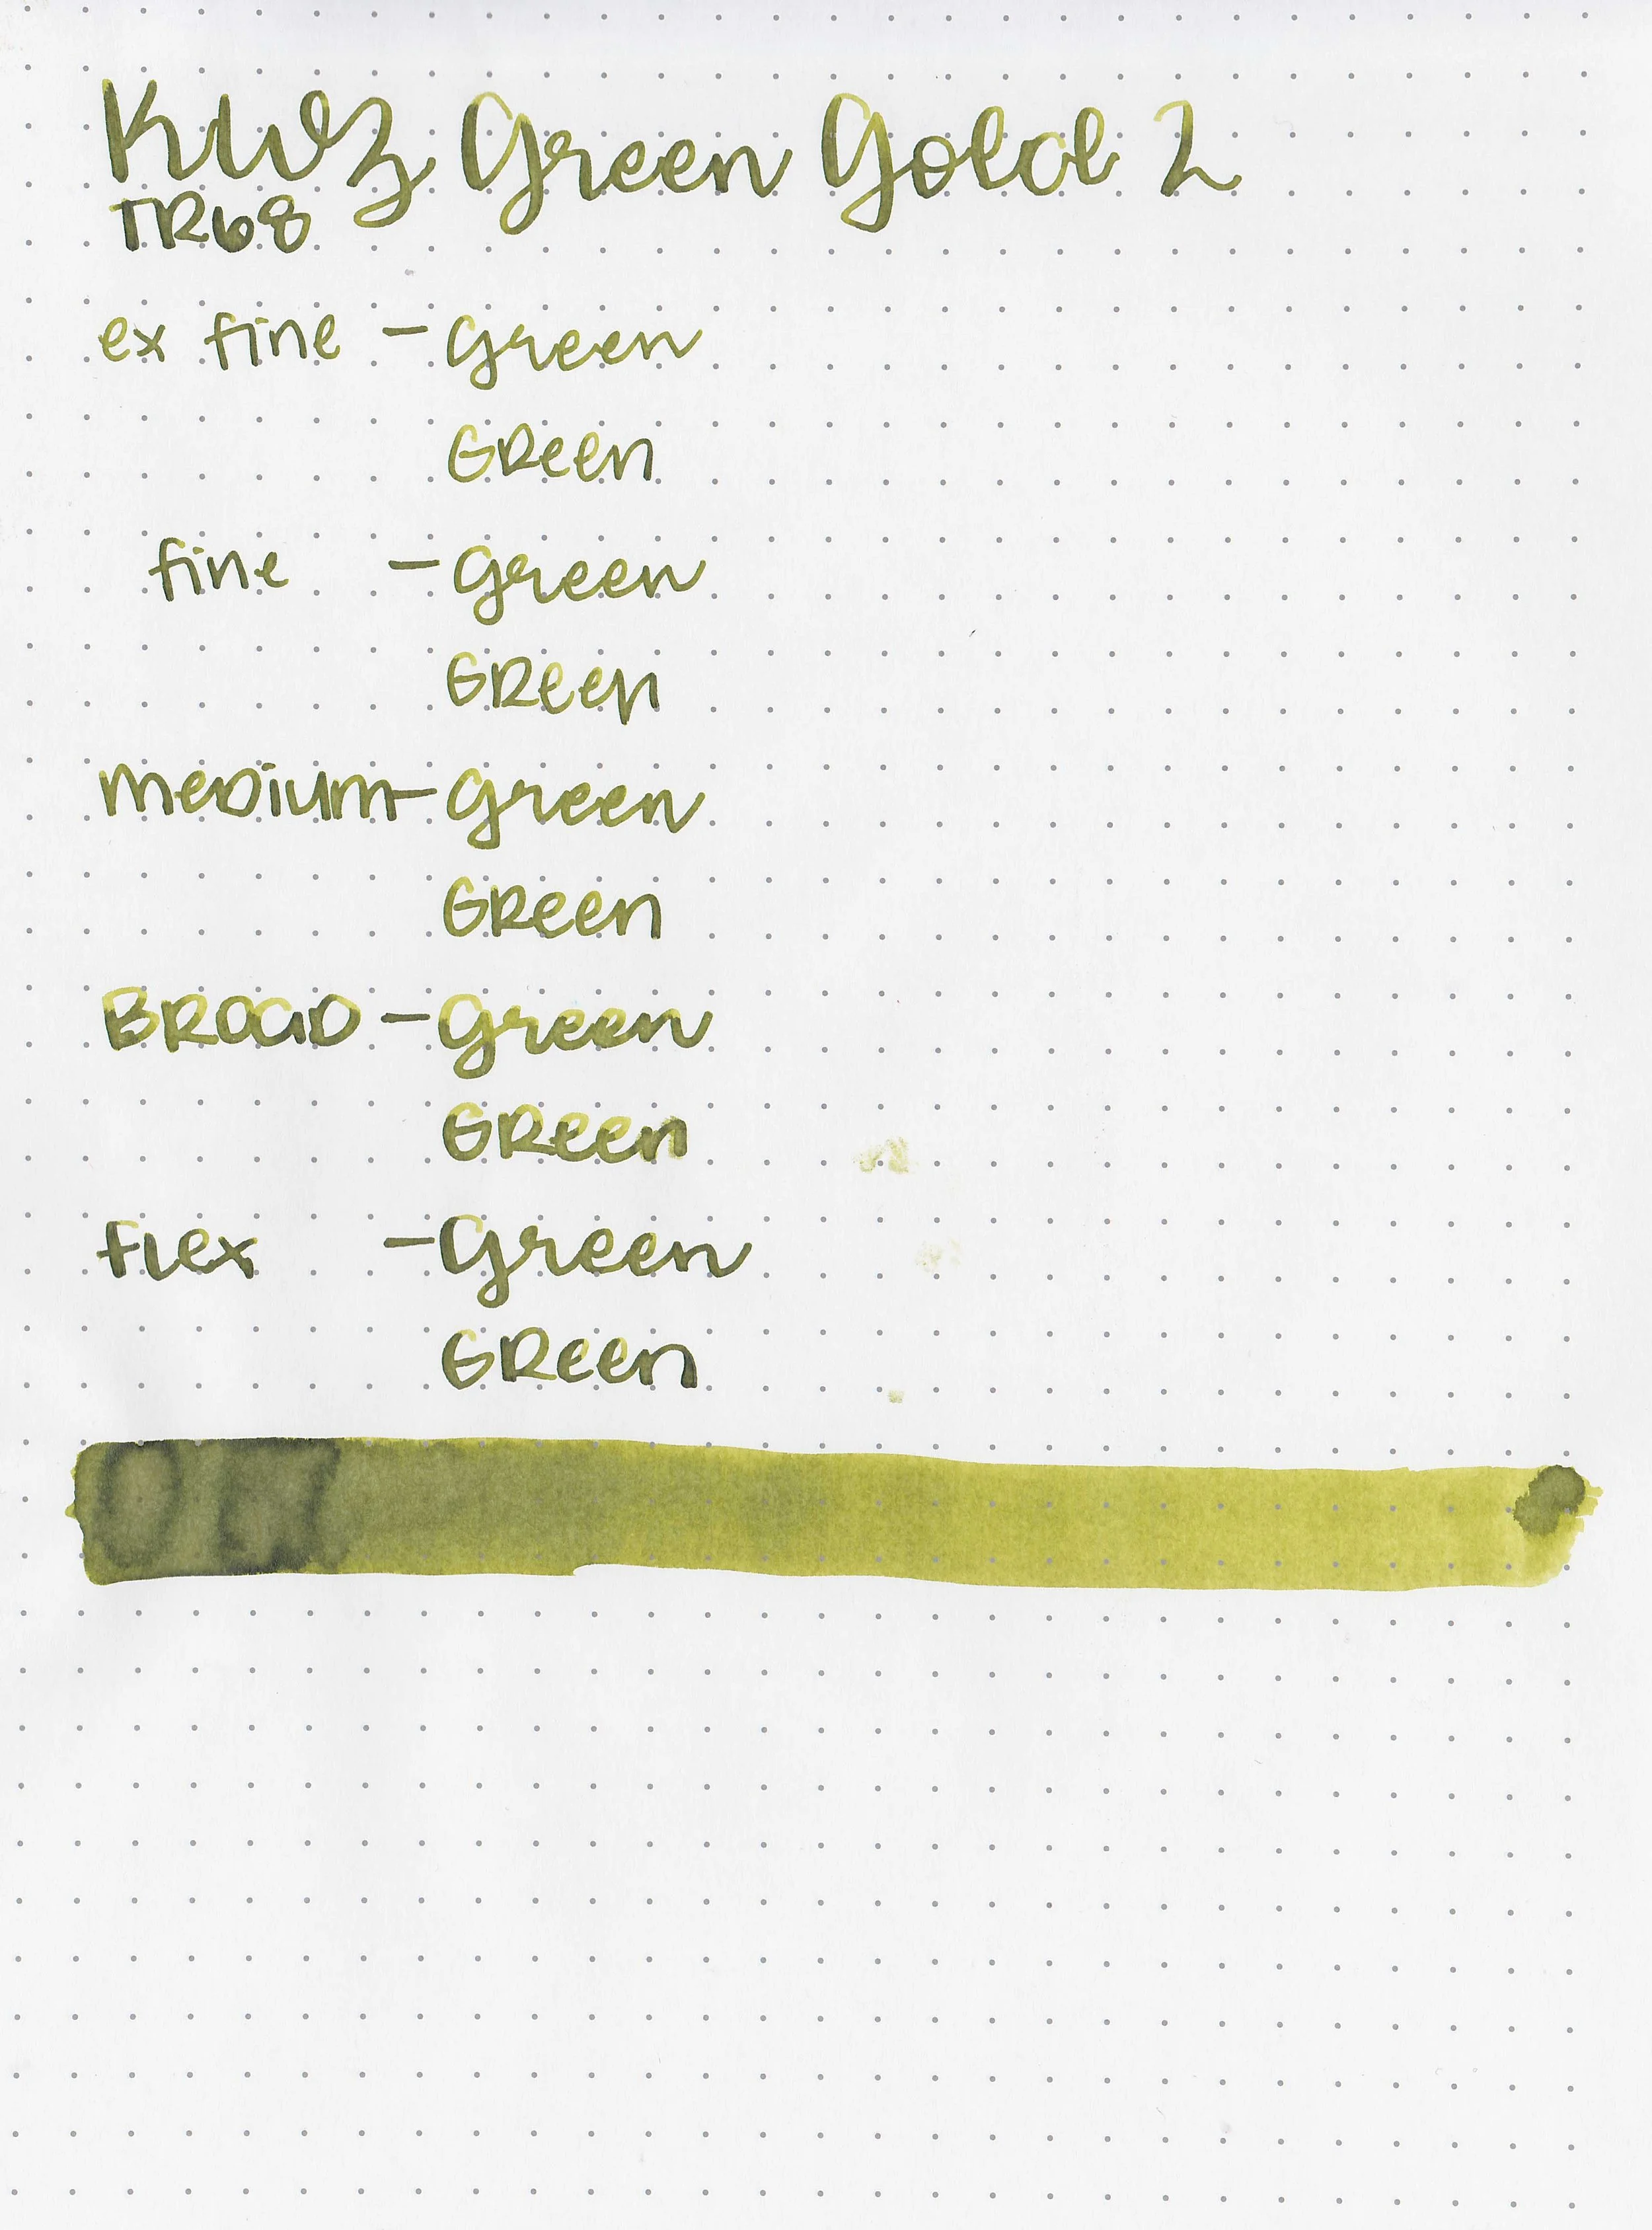 KWZ Green Gold 2
TR68
ex fine - Green
GReen
fine - Green
GReen
meDium - Green
GReen
BROaD - Green
GReen
flex - Green
GReen